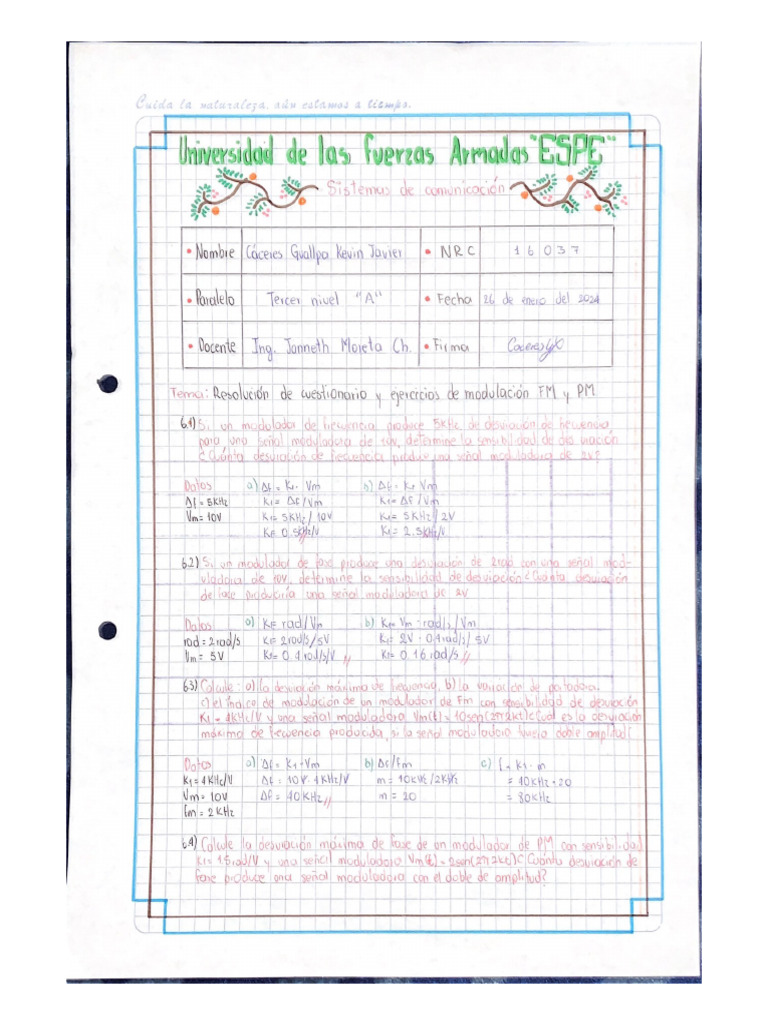 Cuida la naturaleza, aún estamos a tiempo.
Universidad de las Fuerzas Armadas "ESPE"
Sistemas de comunicación
• Nombre Cáceres Guallpa Kevin Javier • NRC 16037
• Paralelo Tercer nivel "A" • Fecha 26 de enero del 2024
• Docente Ing. Janneth Moreta Ch. • Firma
Tema: Resolución de cuestionario y ejercicios de modulación FM y PM
6.1) Si un modulador de frecuencia produce 5kHz de desviación de frecuencia
para una señal moduladora de 10v, determine la sensibilidad de desviación
¿Cuánta desviación de frecuencia produce una señal moduladora de 2v?
Datos a) Δf = K1 · Vm b) Δf = K1 Vm
Δf = 5KHz K1 = Δf/Vm K1 = Δf/Vm
Vm = 10V K1 = 5KHz/10V K1 = 5KHz/2V
K1 = 0.5KHz/V K1 = 2.5KHz/V
6.2) Si un modulador de fase produce una desviación de 2rad con una señal mod-
uladora de 10V, determine la sensibilidad de desviación ¿Cuánta desviación
de fase produciría una señal moduladora de 2V
Datos a) K= rad/Vm b) K= Vm · rad/s/Vm
rad = 2rad/s K= 2rad/s/5V K= 2V · 0.4rad/s/5V
Vm = 5V K= 0.4rad/s/V K= 0.16rad/s
6.3) Calcule: a) la desviación máxima de frecuencia, b) la variación de portadora,
c) el índice de modulación de un modulador de Fm con sensibilidad de desviación
K1 = 4KHz/V y una señal moduladora Vm(t) = 10sen(2π2kt) ¿Cuál es la desviación
máxima de frecuencia producida, si la señal moduladora doble amplitud?
Datos a) Δf = K1 · Vm b) Δf/Fm c) f = K1 · m
K1 = 4KHz/V Δf = 10V · 4KHz/V m = 40KHz/2KHz = 40KHz · 20
Vm = 10V Δf = 40KHz m = 20 = 80KHz
Fm = 2KHz
6.4) Calcule la desviación máxima de fase de un modulador de PM con sensibilidad
K1 = 1.5rad/V y una señal moduladora Vm(t) = 2sen(2π2kt) ¿Cuánta desviación de
fase produce una señal moduladora con el doble de amplitud?